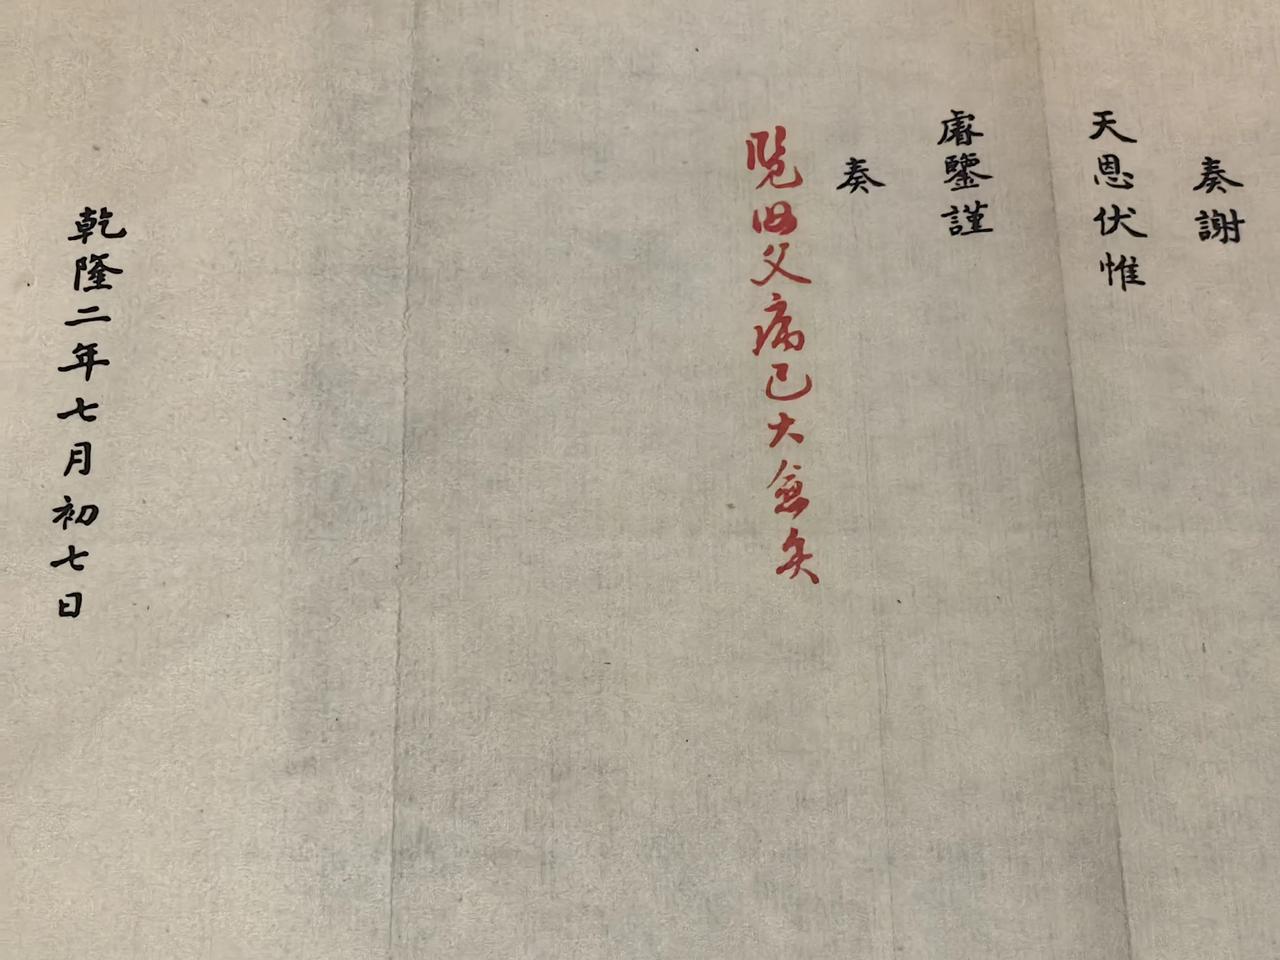 奏謝
天恩伏惟
睿鑒謹
奏
覽汝父病已大愈矣
乾隆二年七月初七日